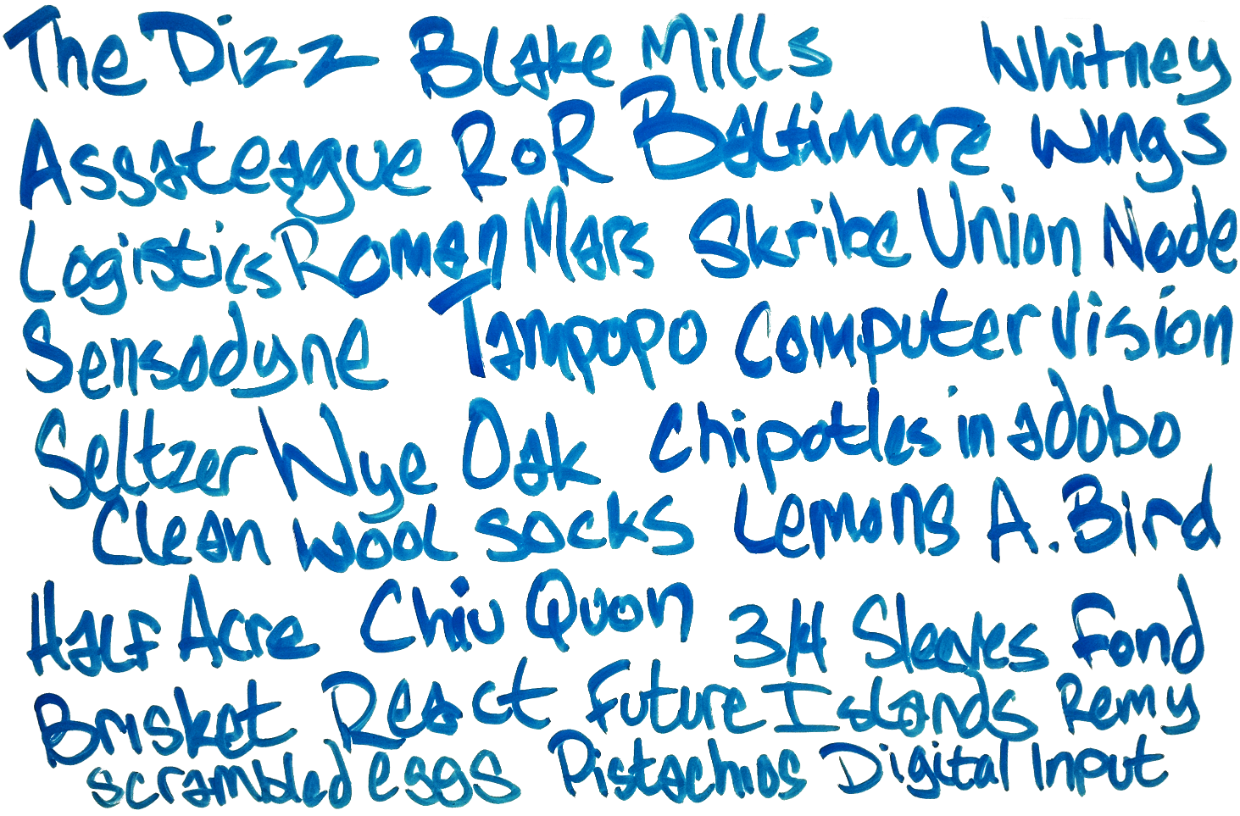 The Dizz Blake Mills Whitney
Assateague RoR Baltimore Wings
Logistics Roman Mars Skribe Union Node
Sensodyne Tampopo Computer Vision
Seltzer Wye Oak Chipotles in adobo
Clean wool socks Lemons A. Bird
Half Acre Chiu Quon 3/4 Sleeves Fond
Brisket React Future Islands Remy
scrambled eggs Pistachios Digital Input